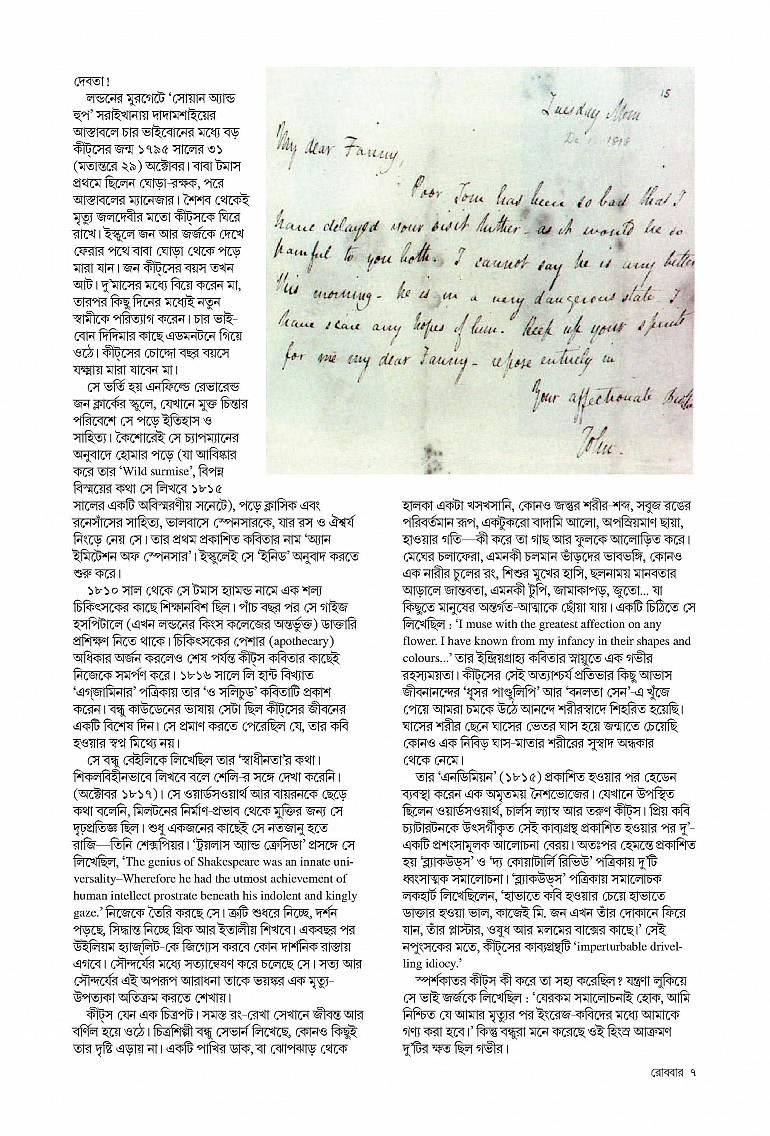 দেবতা!
লন্ডনের মুরগেটে ‘সোয়ান অ্যান্ড
হুপ’ সরাইখানায় দাদামশাইয়ের
আস্তাবলে চার ভাইবোনের মধ্যে বড়
কীট্‌সের জন্ম ১৭৯৫ সালের ৩১
(মতান্তরে ২৯) অক্টোবর। বাবা টমাস
প্রথমে ছিলেন ঘোড়া-রক্ষক, পরে
আস্তাবলের ম্যানেজার। শৈশব থেকেই
মৃত্যু জলদেবীর মতো কীট্‌সকে ঘিরে
রাখে। ইস্কুলে জন আর জর্জকে দেখে
ফেরার পথে বাবা ঘোড়া থেকে পড়ে
মারা যান। জন কীট্‌সের বয়স তখন
আট। দু’মাসের মধ্যে বিয়ে করেন মা,
তারপর কিছু দিনের মধ্যেই নতুন
স্বামীকে পরিত্যাগ করেন। চার ভাই-
বোন দিদিমার কাছে এডমনটনে গিয়ে
ওঠে। কীট্‌সের চোদ্দো বছর বয়সে
যক্ষ্মায় মারা যাবেন মা।
সে ভর্তি হয় এনফিল্ডে রেভারেন্ড
জন ক্লার্কের স্কুলে, যেখানে মুক্ত চিন্তার
পরিবেশে সে পড়ে ইতিহাস ও
সাহিত্য। কৈশোরেই সে চ্যাপম্যানের
অনুবাদে হোমার পড়ে (যা আবিষ্কার
করে তার ‘Wild surmise’, বিপন্ন
বিস্ময়ের কথা সে লিখবে ১৮১৫
সালের একটি অবিস্মরণীয় সনেটে), পড়ে ক্লাসিক এবং
রনেসাঁসের সাহিত্য, ভালবাসে স্পেনসারকে, যার রস ও ঐশ্বর্য
নিংড়ে নেয় সে। তার প্রথম প্রকাশিত কবিতার নাম ‘অ্যান
ইমিটেশন অফ স্পেনসার’। ইস্কুলেই সে ‘ইনিড’ অনুবাদ করতে
শুরু করে।
১৮১০ সাল থেকে সে টমাস হ্যামন্ড নামে এক শল্য
চিকিৎসকের কাছে শিক্ষানবিশ ছিল। পাঁচ বছর পর সে গাইজ
হসপিটালে (এখন লন্ডনের কিংস কলেজের অন্তর্ভুক্ত) ডাক্তারি
প্রশিক্ষণ নিতে থাকে। চিকিৎসকের পেশার (apothecary)
অধিকার অর্জন করলেও শেষ পর্যন্ত কীট্‌স কবিতার কাছেই
নিজেকে সমর্পণ করে। ১৮১৬ সালে লি হান্ট বিখ্যাত
‘এগ্‌জামিনার’ পত্রিকায় তার ‘ও সলিচুড’ কবিতাটি প্রকাশ
করেন। বন্ধু কাউডেনের ভাষায় সেটা ছিল কীট্‌সের জীবনের
একটি বিশেষ দিন। সে প্রমাণ করতে পেরেছিল যে, তার কবি
হওয়ার স্বপ্ন মিথ্যে নয়।
সে বন্ধু বেইলিকে লিখেছিল তার ‘স্বাধীনতা’র কথা।
শিকলবিহীনভাবে লিখবে বলে শেলি-র সঙ্গে দেখা করেনি।
(অক্টোবর ১৮১৭)। সে ওয়ার্ডসওয়ার্থ আর বায়রনকে ছেড়ে
কথা বলেনি, মিলটনের নির্মাণ-প্রভাব থেকে মুক্তির জন্য সে
দৃঢ়প্রতিজ্ঞ ছিল। শুধু একজনের কাছেই সে নতজানু হতে
রাজি—তিনি শেক্সপিয়র। ‘ট্রয়লাস অ্যান্ড ক্রেসিডা’ প্রসঙ্গে সে
লিখেছিল, ‘The genius of Shakespeare was an innate uni-
versality–Wherefore he had the utmost achievement of
human intellect prostrate beneath his indolent and kingly
gaze.’ নিজেকে তৈরি করছে সে। ত্রুটি শুধরে নিচ্ছে, দর্শন
পড়ছে, সিদ্ধান্ত নিচ্ছে গ্রিক আর ইতালীয় শিখবে। একবছর পর
উইলিয়ম হ্যাজ্‌লিট-কে জিগ্যেস করবে কোন দার্শনিক রাস্তায়
এগবে। সৌন্দর্যের মধ্যে সত্যান্বেষণ করে চলেছে সে। সত্য আর
সৌন্দর্যের এই অপরূপ আরাধনা তাকে ভয়ঙ্কর এক মৃত্যু-
উপত্যকা অতিক্রম করতে শেখায়।
কীট্‌স যেন এক চিত্রপট। সমস্ত রং-রেখা সেখানে জীবন্ত আর
বর্ণিল হয়ে ওঠে। চিত্রশিল্পী বন্ধু সেভার্ন লিখেছে, কোনও কিছুই
তার দৃষ্টি এড়ায় না। একটি পাখির ডাক, বা ঝোপঝাড় থেকে
15
Tuesday Morn
De 1 1818
My dear Fanny,
Poor Tom has been so bad that I
have delayed your visit hither - as it would be so
painful to you both. I cannot say he is any better
this morning - he is in a very dangerous state. I
have scarce any hopes of him. Keep up your spirits
for me my dear Fanny - repose entirely in
Your affectionate Brother
John.
হালকা একটা খসখসানি, কোনও জন্তুর শরীর-শব্দ, সবুজ রঙের
পরিবর্তমান রূপ, একটুকরো বাদামি আলো, অপস্রিয়মাণ ছায়া,
হাওয়ার গতি—কী করে তা গাছ আর ফুলকে আলোড়িত করে।
মেঘের চলাফেরা, এমনকী চলমান ভাঁড়দের ভাবভঙ্গি, কোনও
এক নারীর চুলের রং, শিশুর মুখের হাসি, ছলনাময় মানবতার
আড়ালে জান্তবতা, এমনকী টুপি, জামাকাপড়, জুতো... যা
কিছুতে মানুষের অন্তর্গত-আত্মাকে ছোঁয়া যায়। একটি চিঠিতে সে
লিখেছিল : ‘I muse with the greatest affection on any
flower. I have known from my infancy in their shapes and
colours...’ তার ইন্দ্রিয়গ্রাহ্য কবিতার স্নায়ুতে এক গভীর
রহস্যময়তা। কীট্‌সের সেই অত্যাশ্চর্য প্রতিভার কিছু আভাস
জীবনানন্দের ‘ধূসর পাণ্ডুলিপি’ আর ‘বনলতা সেন’-এ খুঁজে
পেয়ে আমরা চমকে উঠে আনন্দে শরীরস্বাদে শিহরিত হয়েছি।
ঘাসের শরীর ছেনে ঘাসের ভেতর ঘাস হয়ে জন্মাতে চেয়েছি
কোনও এক নিবিড় ঘাস-মাতার শরীরের সুস্বাদ অন্ধকার
থেকে নেমে।
তার ‘এনডিমিয়ন’ (১৮১৫) প্রকাশিত হওয়ার পর হেডেন
ব্যবস্থা করেন এক অমৃতময় নৈশভোজের। যেখানে উপস্থিত
ছিলেন ওয়ার্ডসওয়ার্থ, চার্লস ল্যাম্ব আর তরুণ কীট্‌স। প্রিয় কবি
চ্যাটারটনকে উৎসর্গীকৃত সেই কাব্যগ্রন্থ প্রকাশিত হওয়ার পর দু’-
একটি প্রশংসামূলক আলোচনা বেরয়। অতঃপর হেমন্তে প্রকাশিত
হয় ‘ব্ল্যাকউড্‌স’ ও ‘দ্য কোয়ার্টার্লি রিভিউ’ পত্রিকায় দু’টি
ধ্বংসাত্মক সমালোচনা। ‘ব্ল্যাকউড্‌স’ পত্রিকায় সমালোচক
লকহার্ট লিখেছিলেন, ‘হাভাতে কবি হওয়ার চেয়ে হাভাতে
ডাক্তার হওয়া ভাল, কাজেই মি. জন এখন তাঁর দোকানে ফিরে
যান, তাঁর প্লাস্টার, ওষুধ আর মলমের বাক্সের কাছে।’ সেই
নপুংসকের মতে, কীট্‌সের কাব্যগ্রন্থটি ‘imperturbable drivel-
ling idiocy.’
স্পর্শকাতর কীট্‌স কী করে তা সহ্য করেছিল? যন্ত্রণা লুকিয়ে
সে ভাই জর্জকে লিখেছিল : ‘যেরকম সমালোচনাই হোক, আমি
নিশ্চিত যে আমার মৃত্যুর পর ইংরেজ-কবিদের মধ্যে আমাকে
গণ্য করা হবে।’ কিন্তু বন্ধুরা মনে করেছে ওই হিংস্র আক্রমণ
দু’টির ক্ষত ছিল গভীর।
রোববার ৭